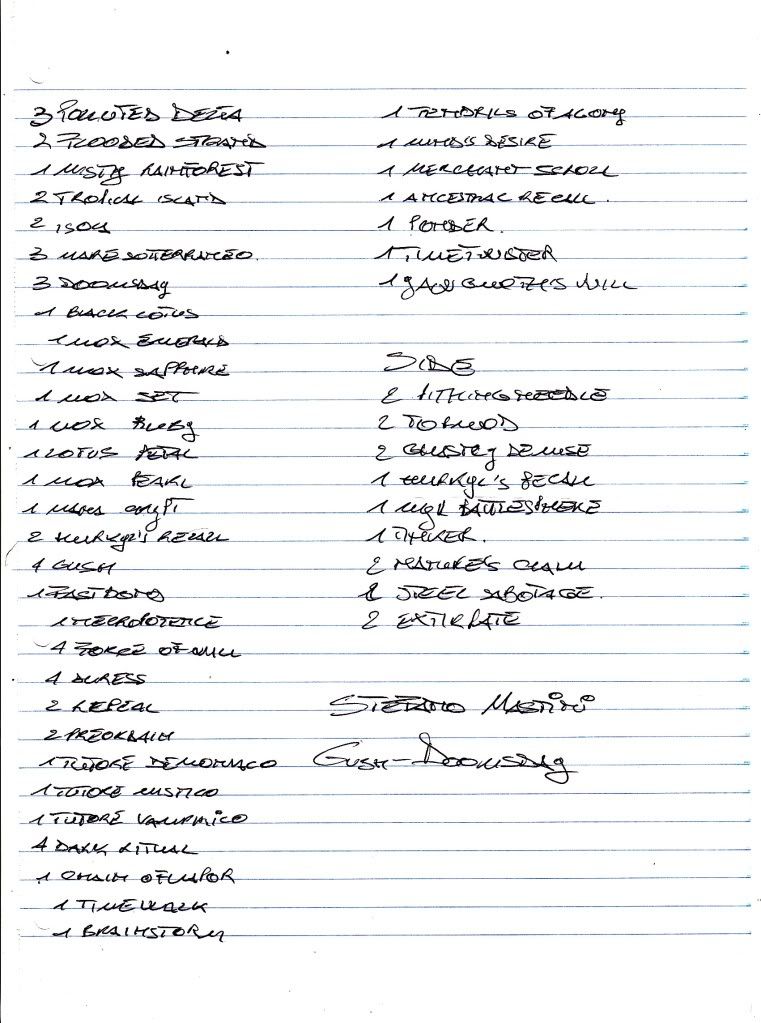 3 POLLUTED DELTA
2 FLOODED STRAND
1 MISTY RAINFOREST
2 TROPICAL ISLAND
2 ISOLA
3 MARE SOTTERRANEO.
3 DOOMSDAY
1 BLACK LOTUS
1 MOX EMERALD
1 MOX SAPPHIRE
1 MOX JET
1 MOX RUBY
1 LOTUS PETAL
1 MOX PEARL
1 MANA CRYPT
2 HURKYL'S RECALL
4 GUSH
1 FASTBOND
1 NECROPOTENCE
4 FORCE OF WILL
4 DURESS
2 REPEAL
2 PREORDAIN
1 TUTORE DEMONIACO
1 TUTORE MISTICO
1 TUTORE VAMPIRICO
4 DARK RITUAL
1 CHAIN OF VAPOR
1 TIME WALK
1 BRAINSTORM
1 TENDRILS OF AGONY
1 MIND'S DESIRE
1 MERCHANT SCROLL
1 ANCESTRAL RECALL.
1 PONDER.
1 TIMETWISTER
1 YAWGMOTH'S WILL
SIDE
2 PITHING NEEDLE
2 TORMOD
2 GHASTLY DEMISE
1 HURKYL'S RECALL
1 MYR BATTLESPHERE
1 TINKER.
2 NATURE'S CLAIM
2 STEEL SABOTAGE.
2 EXTIRPATE
STEFANO MASTINI
GUSH-DOOMSDAY